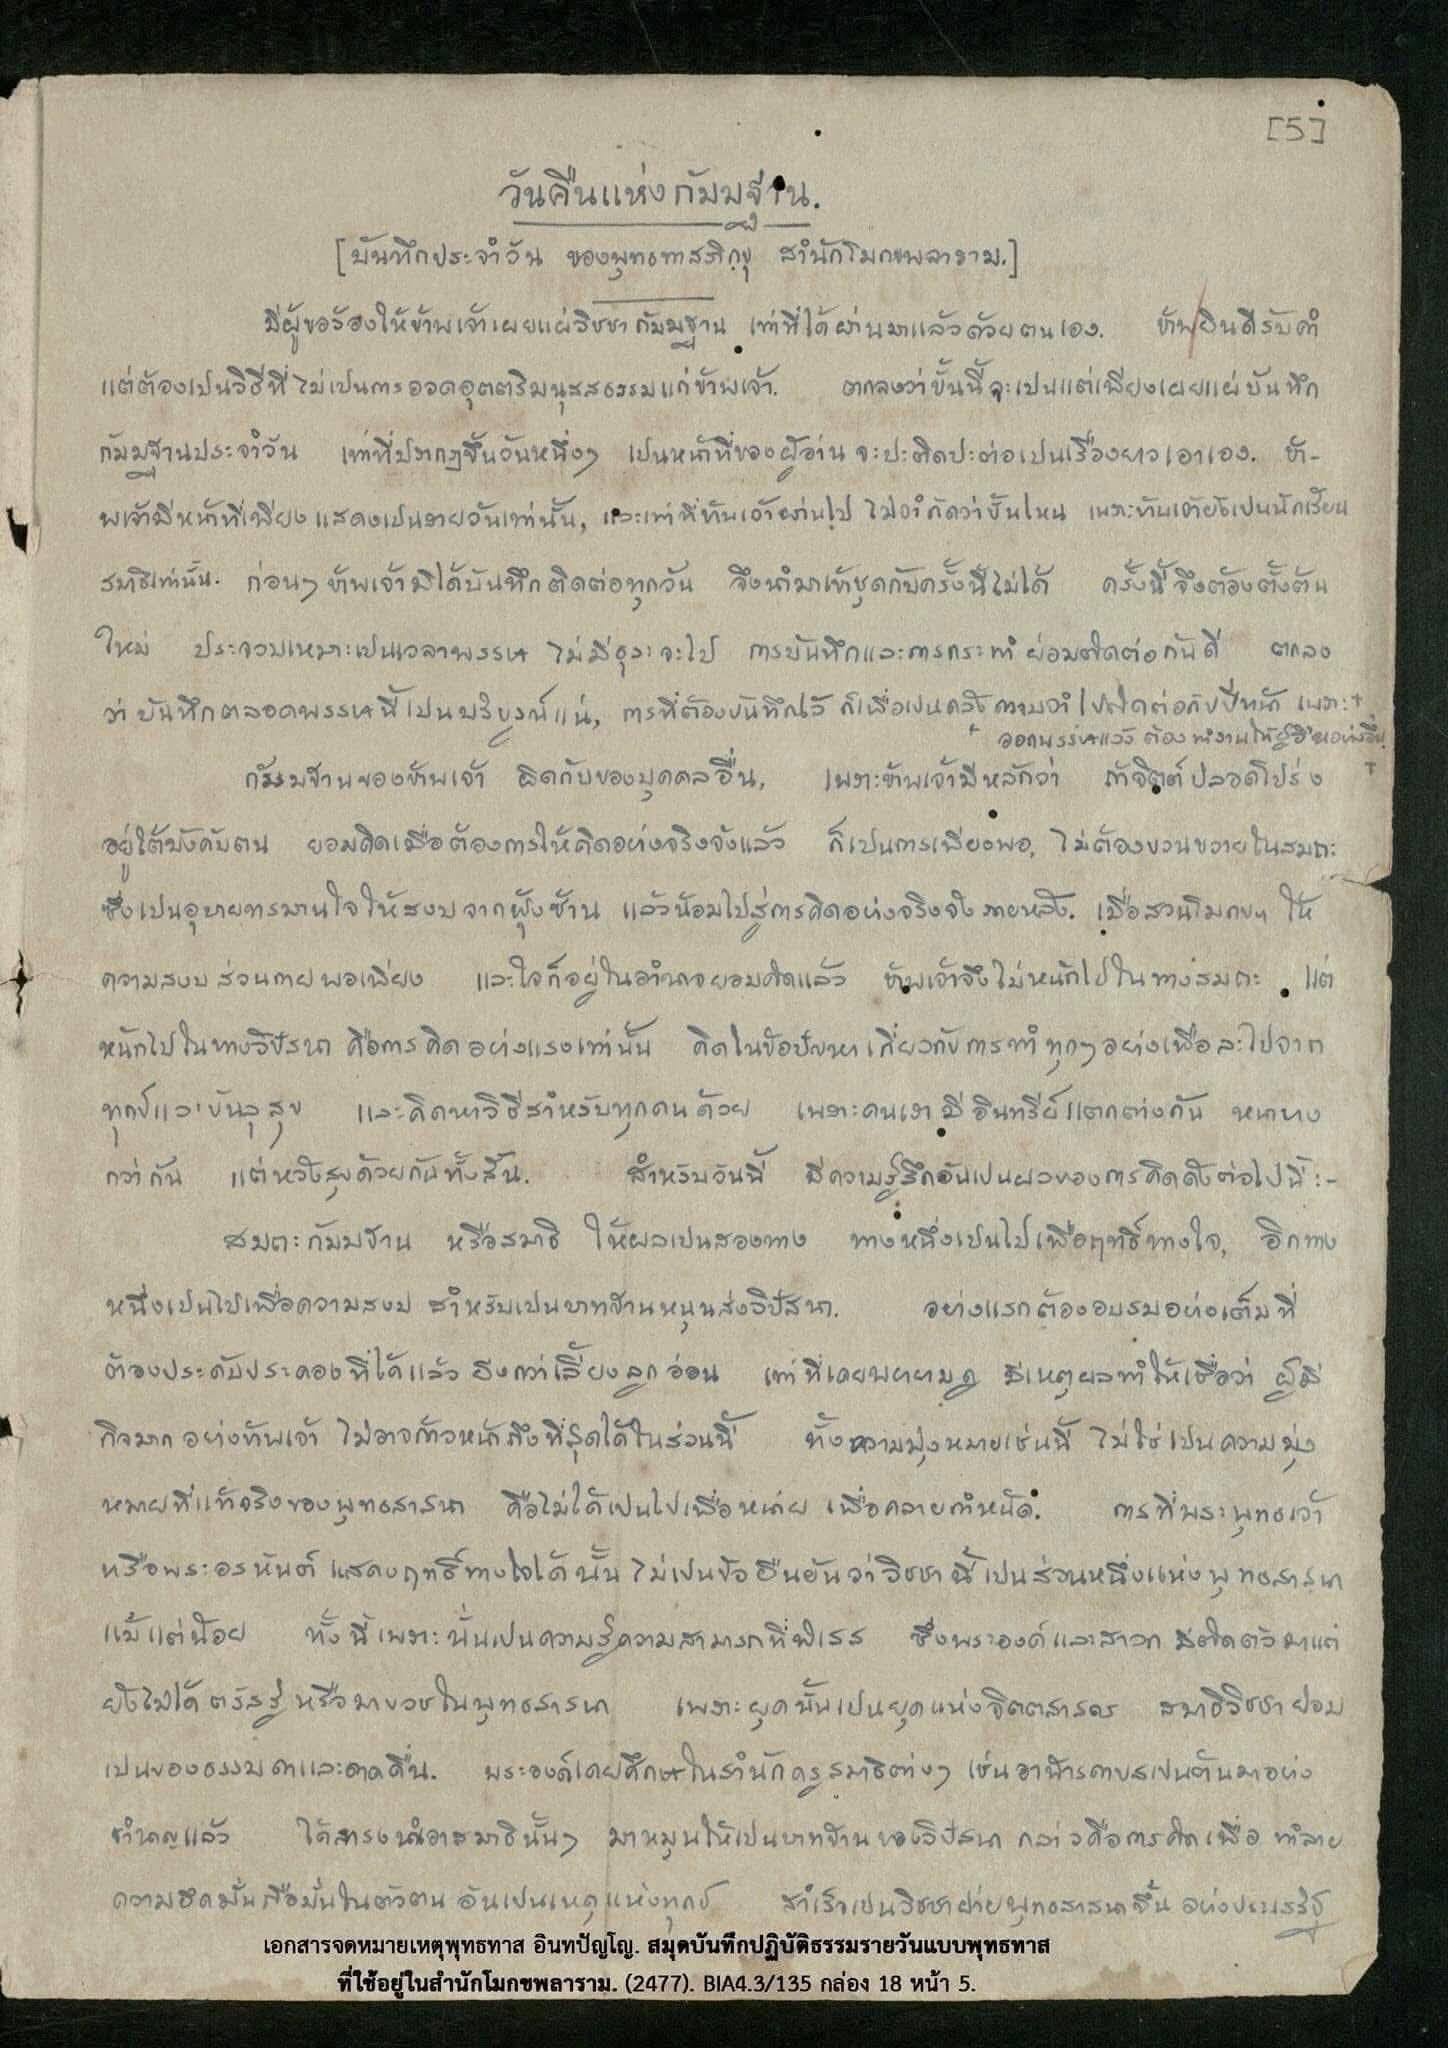 [5]
วันคืนแห่งกัมมฐาน.
[บันทึกประจำวัน ของพุทธทาสภิกขุ สำนักโมกขพลาราม.]
มีผู้ขอร้องให้ข้าพเจ้าเผยแผ่วิชชากัมมฐาน เท่าที่ได้ผ่านมาแล้วด้วยตนเอง. ข้าพยินดีรับทำ
แต่ต้องเป็นวิธีที่ไม่เป็นการอวดอุตตริมนุสสธรรมแก่ข้าพเจ้า. ตกลงว่าขั้นนี้จะเป็นแต่เพียงเผยแผ่บันทึก
กัมมฐานประจำวัน เท่าที่ปรากฏขึ้นวันหนึ่งๆ เป็นหน้าที่ของผู้อ่านจะปะติดปะต่อเป็นเรื่องยาวเอาเอง. ข้า-
พเจ้ามีหน้าที่เพียงแสดงเป็นรายวันเท่านั้น, และเท่าที่ข้าพเจ้าผ่านไป ไม่จำกัดว่าขั้นไหน เพราะข้าพเจ้ายังเป็นนักเรียน
สมาธิเท่านั้น. ก่อนๆ ข้าพเจ้ามิได้บันทึกติดต่อทุกวัน จึงนำมาเข้าชุดกับครั้งนี้ไม่ได้ ครั้งนี้จึงต้องตั้งต้น
ใหม่ ประจวบเหมาะเป็นเวลาพรรษา ไม่มีธุระจะไป การบันทึกและการกระทำย่อมติดต่อกันดี ตกลง
ว่าบันทึกตลอดพรรษานี้เป็นบริบูรณ์แน่, การที่ต้องบันทึกไว้ ก็เพื่อเป็นความจำไปติดต่อกับปีหน้า เพราะ+
ออกพรรษาแล้ว ต้องทำงานให้ผู้อื่นอย่างอื่น.
กรรมฐานของข้าพเจ้า ผิดกับของบุคคลอื่น, เพราะข้าพเจ้ามีหลักว่า ถ้าจิตต์ปลอดโปร่ง +
อยู่ใต้บังคับตน ยอมคิดเมื่อต้องการให้คิดอย่างจริงจังแล้ว ก็เป็นการเพียงพอ, ไม่ต้องขวนขวายในสมถะ
ซึ่งเป็นอุบายทรมานใจให้สงบจากฟุ้งซ่าน แล้วน้อมไปสู่การคิดอย่างจริงจังภายหลัง. เมื่อสวนโมกขฯ ให้
ความสงบส่วนกายพอเพียง และใจก็อยู่ในอำนาจยอมคิดแล้ว ข้าพเจ้าจึงไม่หนักไปในทางสมถะ แต่
หนักไปในทางวิปัสนา คือการคิดอย่างแรงเท่านั้น คิดในข้อปัญหาเกี่ยวกับการทำทุกๆ อย่างเพื่อละไปจาก
ทุกข์และบันลุสุข และคิดหาวิธีสำหรับทุกคนด้วย เพราะคนเรามีอินทรีย์แตกต่างกัน หนาบาง
กว่ากัน แต่หวังสุขด้วยกันทั้งสิ้น. สำหรับวันนี้ มีความรู้สึกอันเป็นผลของการคิดดังต่อไปนี้ :-
สมถะกัมมฐาน หรือสมาธิ ให้ผลเป็นสองทาง ทางหนึ่งเป็นไปเพื่อฤทธิ์ทางใจ, อีกทาง
หนึ่งเป็นไปเพื่อความสงบ สำหรับเป็นบาทฐานหนุนส่งวิปัสนา. อย่างแรกต้องอบรมอย่างเต็มที่
ต้องประคับประคองที่ได้แล้ว ยิ่งกว่าเลี้ยงลูกอ่อน เท่าที่เคยพยายามดู มีเหตุผลทำให้เชื่อว่า ผู้มี
กิจมากอย่างข้าพเจ้า ไม่อาจก้าวหน้าถึงที่สุดได้ในส่วนนี้ ทั้งความมุ่งหมายเช่นนี้ ไม่ใช่เป็นความมุ่ง
หมายที่แท้จริงของพุทธสาสนา คือไม่ได้เป็นไปเพื่อหน่าย เพื่อคลายกำหนัด. การที่พระพุทธเจ้า
หรือพระอรหันต์ แสดงฤทธิ์ทางใจได้นั้น ไม่เป็นข้อยืนยันว่าวิชชานี้เป็นส่วนหนึ่งแห่งพุทธสาสนา
แม้แต่น้อย ทั้งนี้เพราะนั่นเป็นความรู้ความสามารถที่พิเรธ ซึ่งพระองค์และสาวก มีติดตัวมาแต่
ยังไม่ได้ตรัสรู้ หรือมาบวชในพุทธสาสนา เพราะยุคนั้นเป็นยุคแห่งจิตตสาสตร สมาธิวิชชาย่อม
เป็นของธรรมดาและดาดดื่น. พระองค์เคยศึกษาในสำนักครูสมาธิต่างๆ เช่นอาฬารดาบสเป็นต้นมาอย่าง
ชำนาญแล้ว ได้ทรงนำเอาสมาธินั้นๆ มาหนุนให้เป็นบาทฐานของวิปัสนา กล่าวคือการคิดเพื่อ ทำลาย
ความยึดมั่นถือมั่นในตัวตน อันเป็นเหตุแห่งทุกข์ สำเร็จเป็นวิชชาฝ่ายพุทธสาสนาขึ้น อย่างประเสริฐ
เอกสารจดหมายเหตุพุทธทาส อินทปัญโญ. สมุดบันทึกปฏิบัติธรรมรายวันแบบพุทธทาส
ที่ใช้อยู่ในสำนักโมกขพลาราม. (2477). BIA4.3/135 กล่อง 18 หน้า 5.